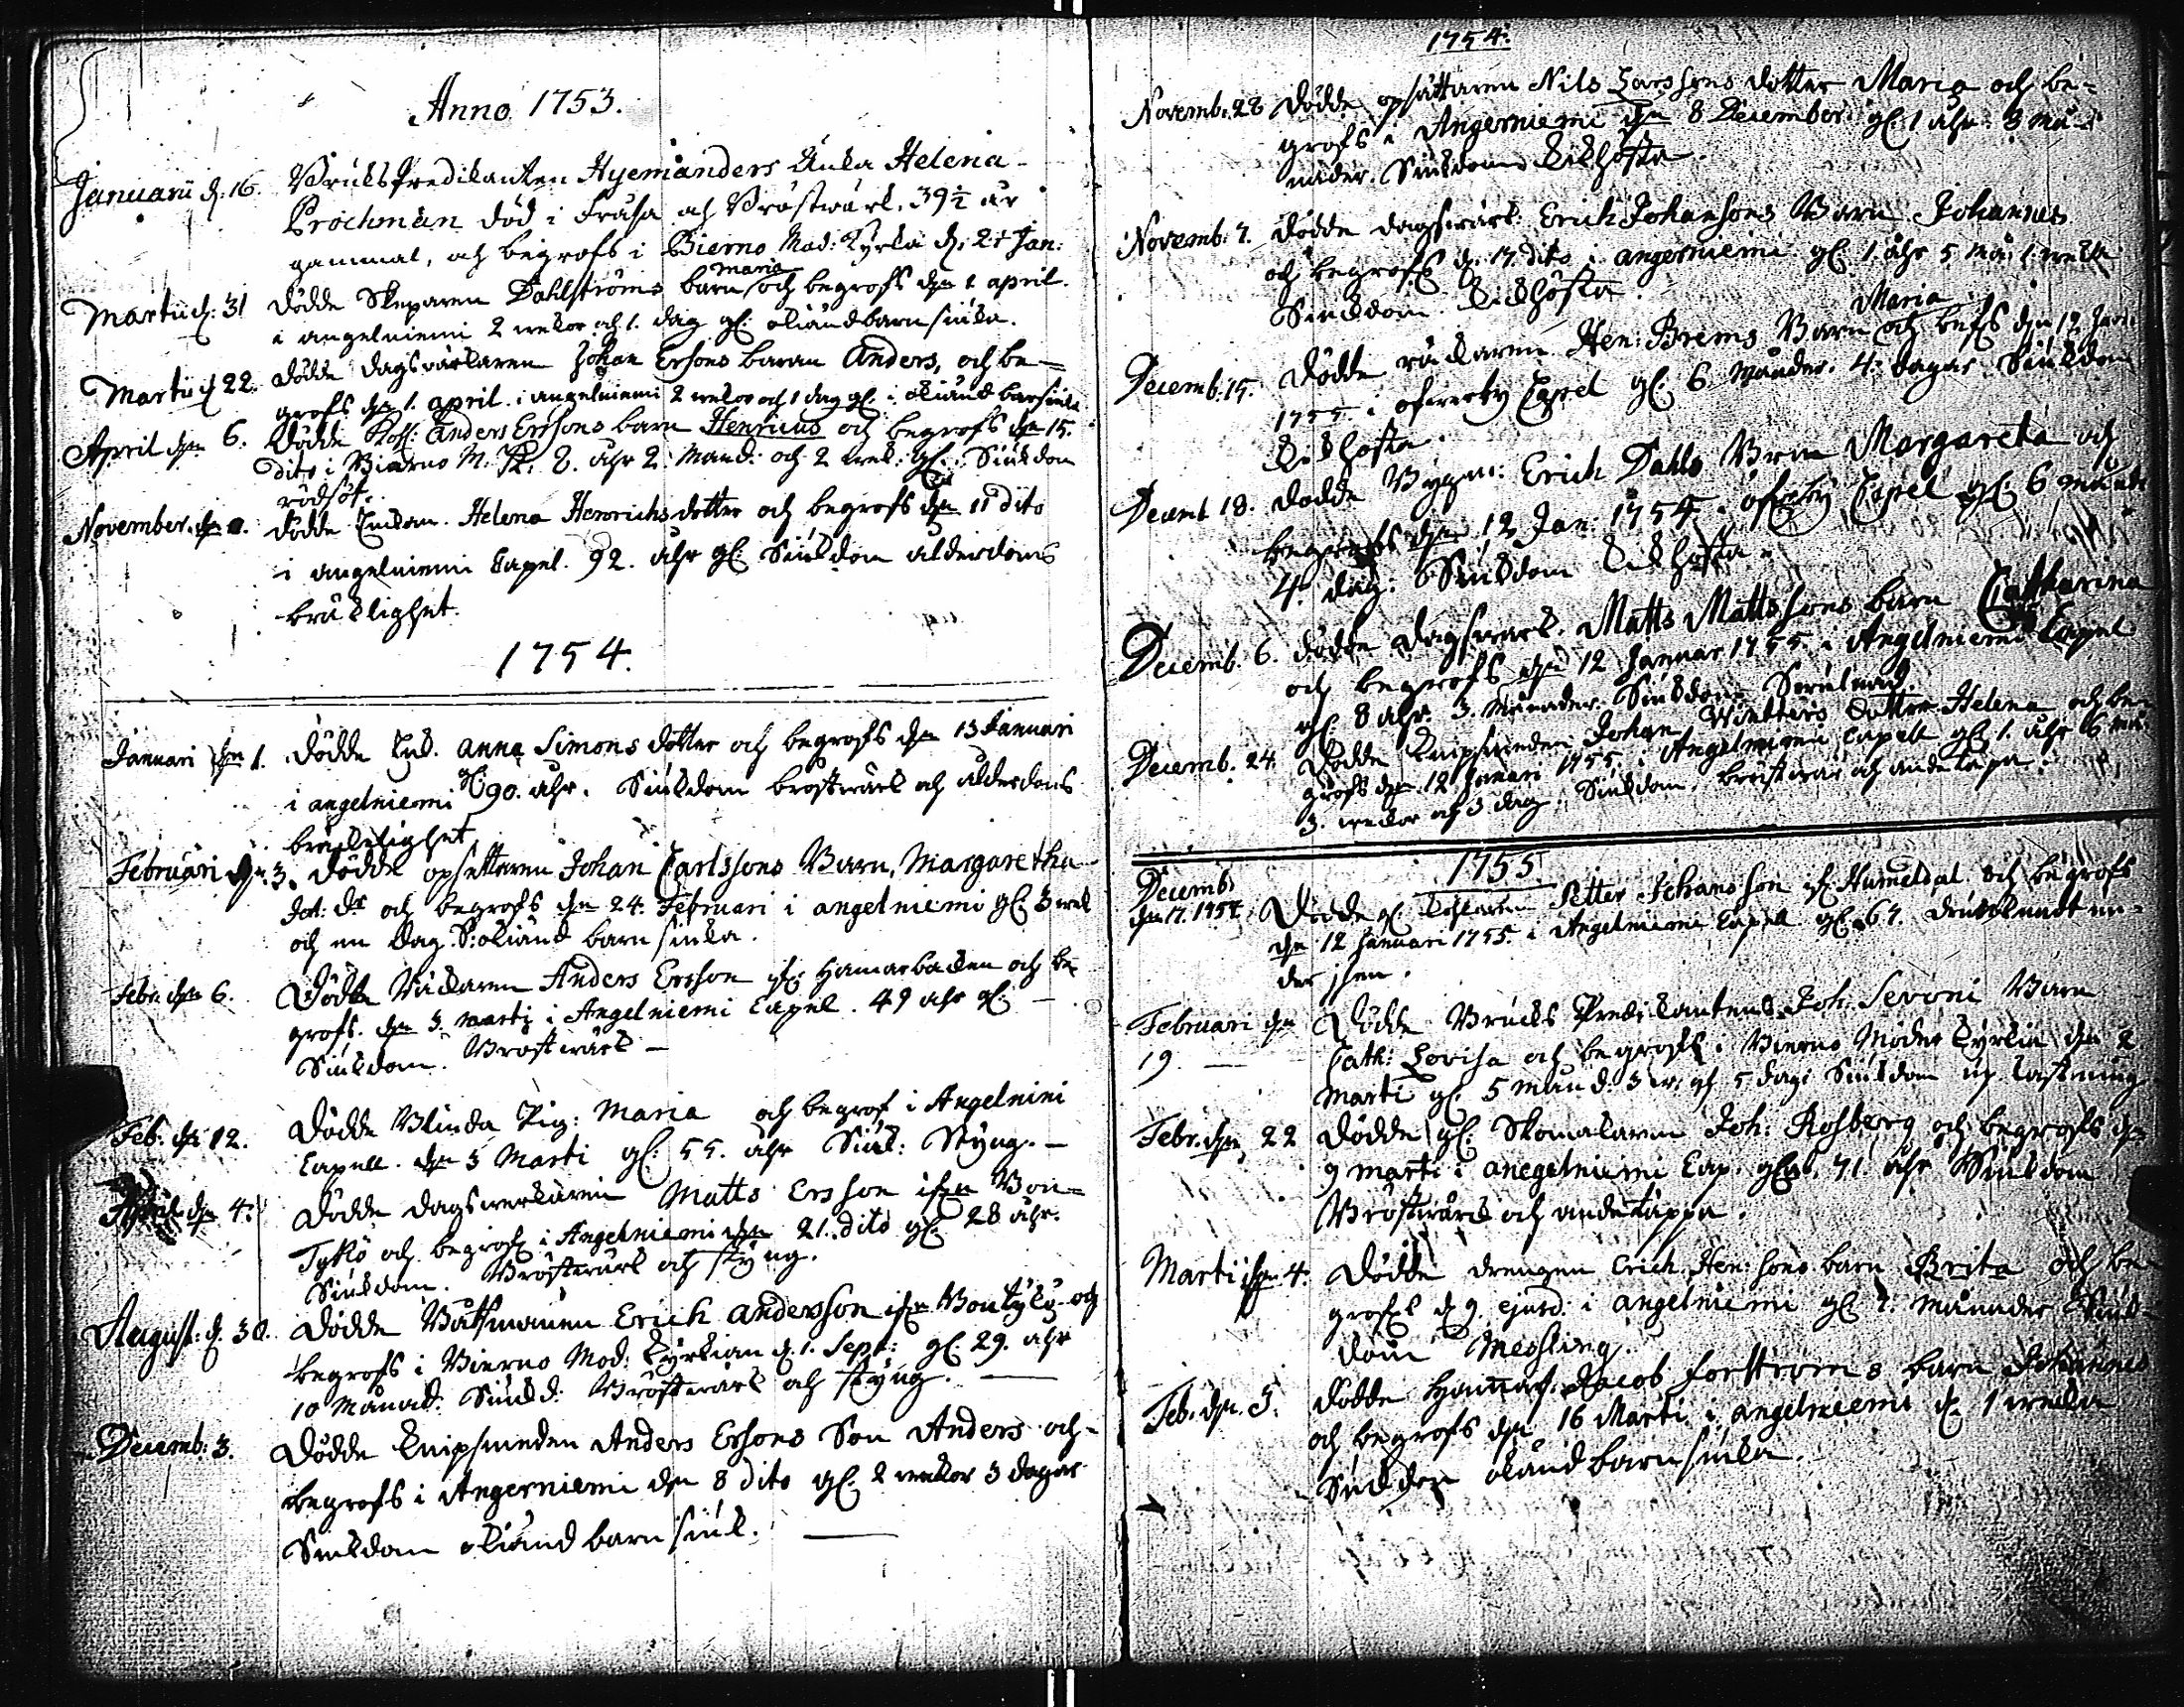 Anno 1753.
Januarii d. 16. Bruks Predikanten Hyemanders Enka Helena
Prochman död i Frasa och Bröstwärk, 39½ år
gammal, och begrofs i Bierno Mod: Kyrka d. 21 Jan:
Martii d: 31 dödde Skeparen Dahlströms barn maria och begrofs den 1 april
i angelniemi 2 wekor och 1. dag gl: okiänd barnsiuka.
Martii d 22. dödde dagsvärkaren Johan Ersons baran Anders, och be=
grofs den 1. april i angelniemi 2 wekor och 1 dag gl: okiänd barnsiuka
April den 6. dödde Anders Erssons barn Henricus och begrofs den 15.
dito i Bierno M. K. 2. åhr 2. Månd: och 2 wek: gl: Siukdom
rödsot.
November. den dödde Enkan. Helena Henrichsdotter och begrofs den 11 dito
i angelniemi Capel. 92. åhr gl: Siukdom ålderdoms
bräklighet.
1754.
Januari den 1. dödde Enk. anna Simons dotter och begrofs den 13 Januari
i angelniemi gl: 90. åhr. Siukdom bröstwärk och ålderdoms
bräkelighet
Februari den 3. dödde opsettaren Johan Carlssons Barn, Margaretha
Joh: dr och begrofs den 24. Februari i angelniemi gl: 3 wek
och en dag S: okiänd barnsiuka.
Febr: den 6. Dödde Anders Ersson ifr: Hamarbacken och be
grofs. den 3. martij i Angelniemi Capel. 49 åhr gl:
Siukdom. Bröstwärk
Feb. den 12. Dödde Blinda Pig: Maria och begrof i Angelnimi
Capell. den 3 Marti gl: 55. åhr Siuk: Styng.
April den 4. dödde dagswerkaren Matts Ersson ifrån Bon=
Tykö och begrofs i Angelniemi den 21. dito gl: 28 åhr.
Siukdom. Bröstwärk och styng.
August: d. 30. dödde Båtsmanen Erich andersson ifrån Bontykö och
begrofs i Bierno Mod: Kyrkian d. 1. Sept: gl: 29. åhr
10 Månad: Siukd: Bröstwärk och styng.
Decemb: 3. Dödde Knipsmeden Anders Ersons Son Anders och
begrofs i Angerniemi den 8 dito gl: 2 wekor 3 dagar
Siukdom okiänd barn siuk.
1754.
Novemb: 28 dödde opsättaren Nils Larssons dotter Maria och be=
grofs i Angerniemi den 8 December gl: 1 åhr 3 må=
nader. Siukdomen Kikhosta.
Novemb: 7. dödde dagswärk: Erich Johansons Barn Johannes
och begrofs d. 17. dito i angerniemi gl: 1. åhr 5 må: 1. weka
Siukdom. Kickhosta.
Decemb: 15. dödde Hen: Brems Barn Maria och befs den 12 Janu
1755 i oferby Capel gl: 6 Månader. 4. dagar. Siukdom
Kikhosta.
Decemb 18. dödde Bygm: Erich Dahls Barn Margareta och
begrofs den 12 Jan: 1754. i oferby Capel gl: 6 månad
4. dag: Siukdom Kikhosta.
Decemb. 6. dödde dagswark. Matts Mattssons barn Catharina
och begrofs den 12 Januar 1755. i Angelniemi Capel
gl: 8 åhr. 3. Månader. Siukdom
Decemb. 24. Dödde Knipsmeden Johan Winters dotter Helena och be=
grofs den 12 Januari 1755. i Angelniemi Capell gl: 1. åhr 6 må
3. wekor och 3 dag. Siukdom. bröstwärk och andetäpa.
1755
Decemb:
den 17. 1754. Dödde gl: Petter Johansson ifr: Humeldal. och begrofs
den 12 Januari 1755. i Angelniemi Capell. gl: 67. drunknadt un=
der isen.
Februari den Dödde Bruks Predikantens Joh: Sevoni Barn
19. Cath: Lovisa och begrofs i Bierno Moder Kyrkia den 2
Marti gl: 5 månd: 3 w: och 5 dag: Siukdom up kastning
Febr. den 22 Dödde gl: Skomakaren Joh: Rosberg och begrofs den
9 marti i anegelniemi Cap. 71. åhr Siukdom
Bröstwärk och andetäppa.
Marti den 4. Dödde drengen Erich Hen: sons barn Brita och be
grofs d. 9. ejusd: i angelniemi gl: 7: månader Siuk=
dom Messling.
Feb. den 5. dödde Jacob Forsströms barn Johannes
och begrofs den 16 Marti i angelniemi gl: 1 wecka
Siukdom okiänd barnsiuka.